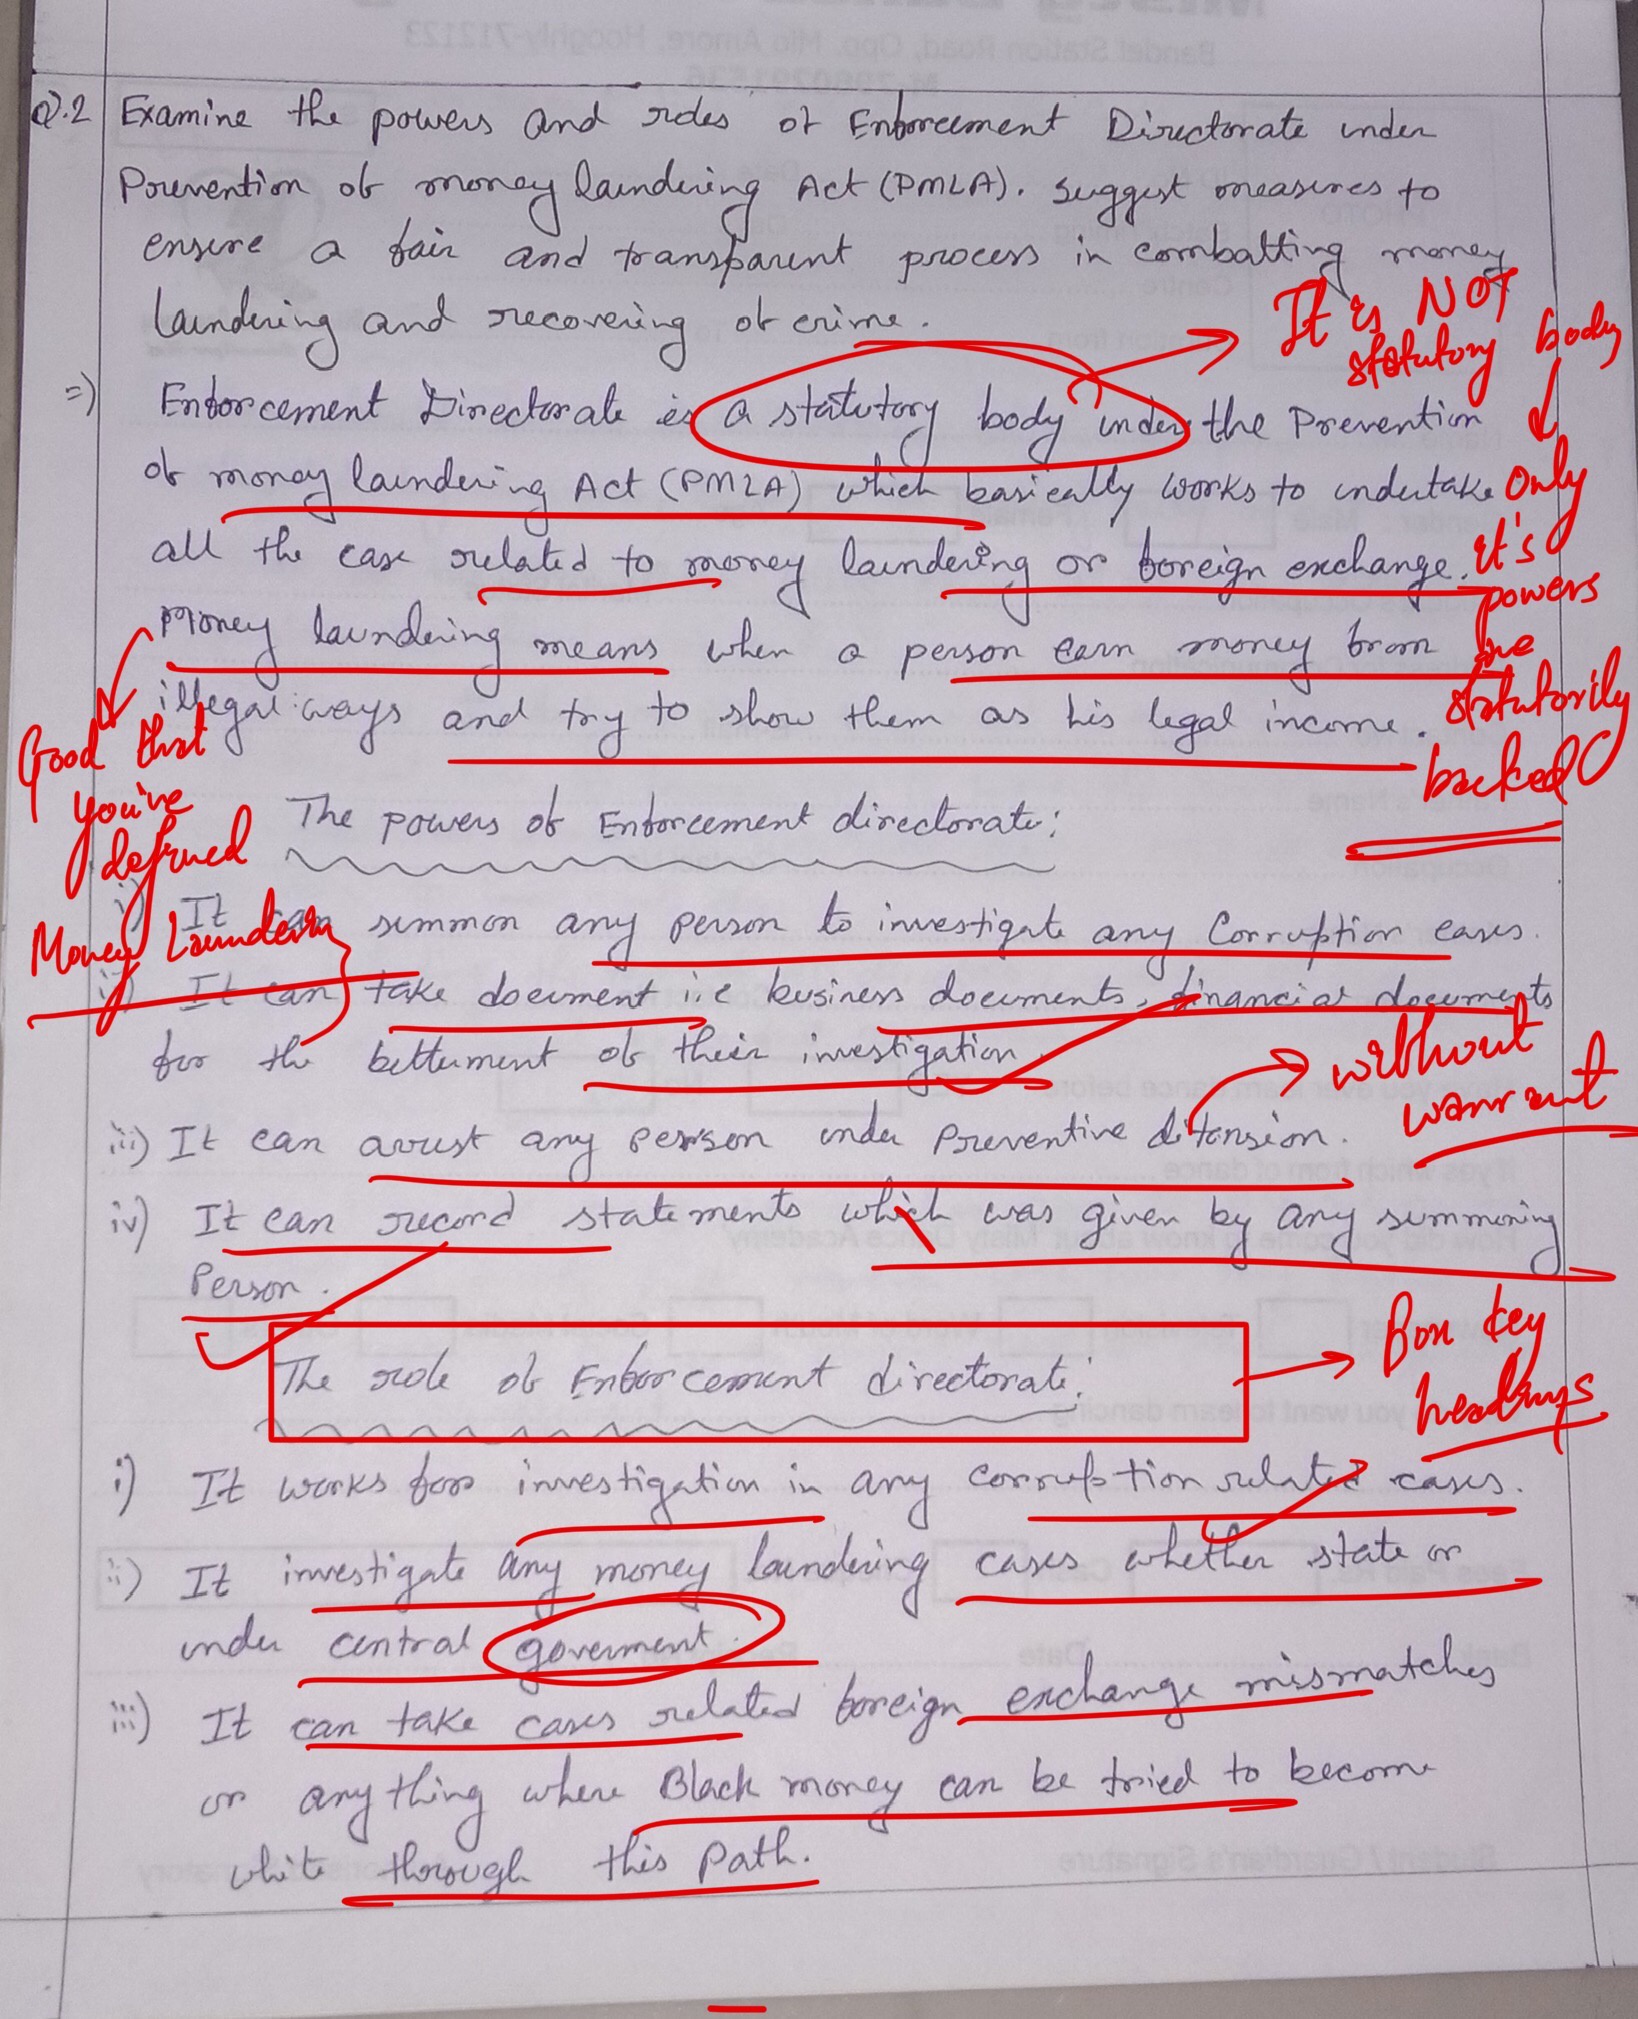 Q.2 Examine the powers and roles of Enforcement Directorate under
Prevention of money laundering Act (PMLA). suggest measures to
ensure a fair and transparent process in combatting money
laundering and recovering of crime.
It is NOT
statutory body
=) Enforcement Directorate is a statutory body under the Prevention
of money laundering Act (PMLA) which basically works to undertake
only
all the case related to money laundering or foreign exchange.
it's
powers
Money laundering means when a person earn money from
are
illegal ways and try to show them as his legal income.
statutorily
backed
Good that
you've
defined
Money Laundering
The powers of Enforcement directorate:
i) It can summon any person to investigate any Corruption cases.
ii) It can take document i.e business documents, financial documents
for the betterment of their investigation.
without
warrant
iii) It can arrest any person under preventive ditension.
iv) It can record statements which was given by any summoning
Person.
Box key
headings
The role of Enforcement directorate:
i) It works for investigation in any corruption related cases.
ii) It investigate any money laundering cases whether state or
under central goverment.
iii) It can take cases related foreign exchange mismatches
or anything where Black money can be tried to become
white through this path.
Bandel Station Road, Opp. Mio Amore, Hooghly-712123